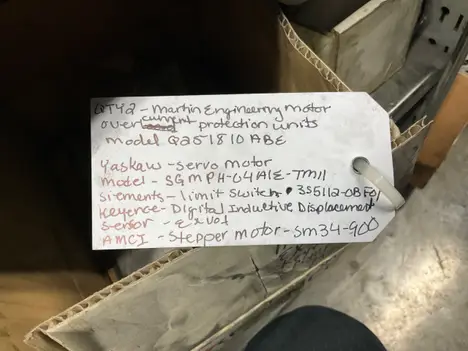 QTY2 - Martin Engineering Motor
over current protection units
model Q251810ABE
Yaskaw - servo motor
Model - SGMPH-04A1E-TM11
Siemens - limit switch • 3SE5112-0BF01
Keyence - Digital Inductive Displacement
sensor - EX-V01
AMCI - Stepper motor - SM34-900